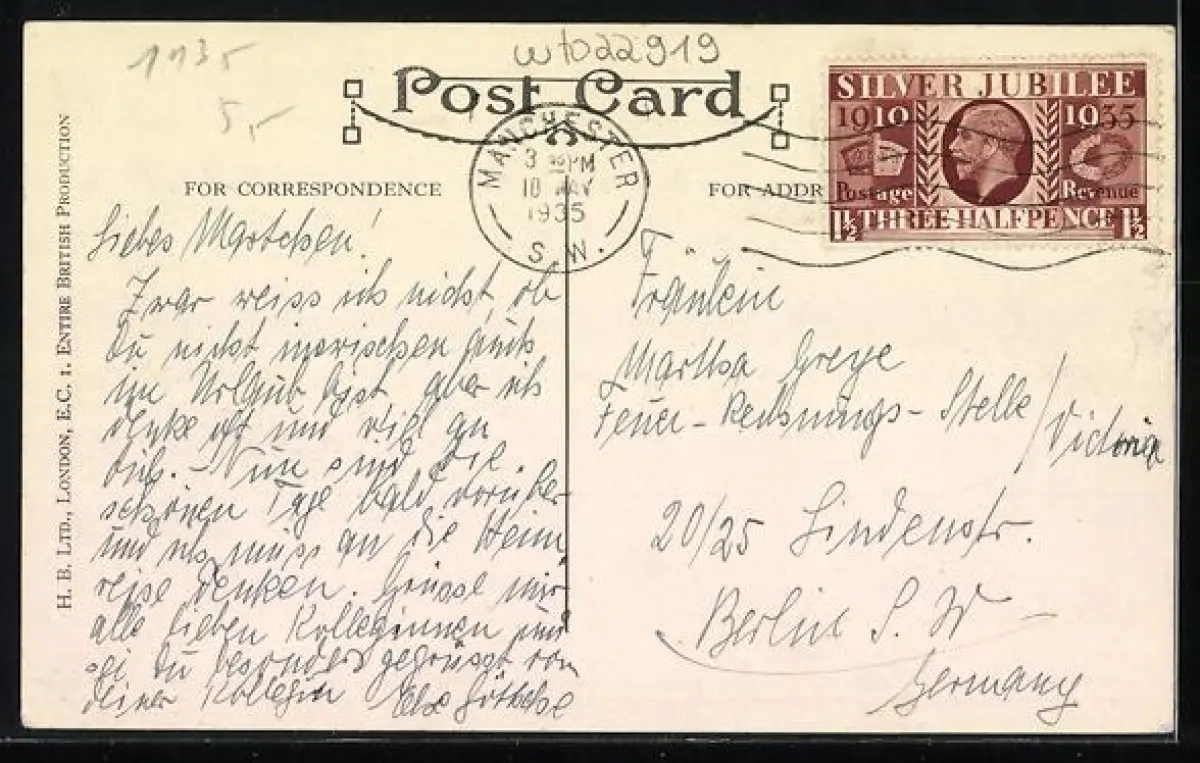 1935
5,-
wto22919
Post Card
H. B. LTD., LONDON, E.C. 1. ENTIRE BRITISH PRODUCTION
FOR CORRESPONDENCE
FOR ADDR
MANCHESTER
3 PM
10 MAY
1935
S.W.
SILVER JUBILEE
1910 1935
Postage Revenue
1½ THREE HALFPENCE 1½
Liebes Martchen!
Zwar weiss ich nicht, ob
Du nicht inzwischen auch
im Urlaub bist, aber ich
denke oft und viel an
Dich. - Nun sind die
schönen Tage bald vorüber
und ich muss an die Heim
reise denken. Grüsse mir
alle lieben Kolleginnen und
sei Du besonders gegrüsst von
deiner Kollegin Else
Fräulein
Martha Greye
Feuer-Rechnungs-Stelle / Victoria
20/25 Lindenstr.
Berlin S. W
Germany